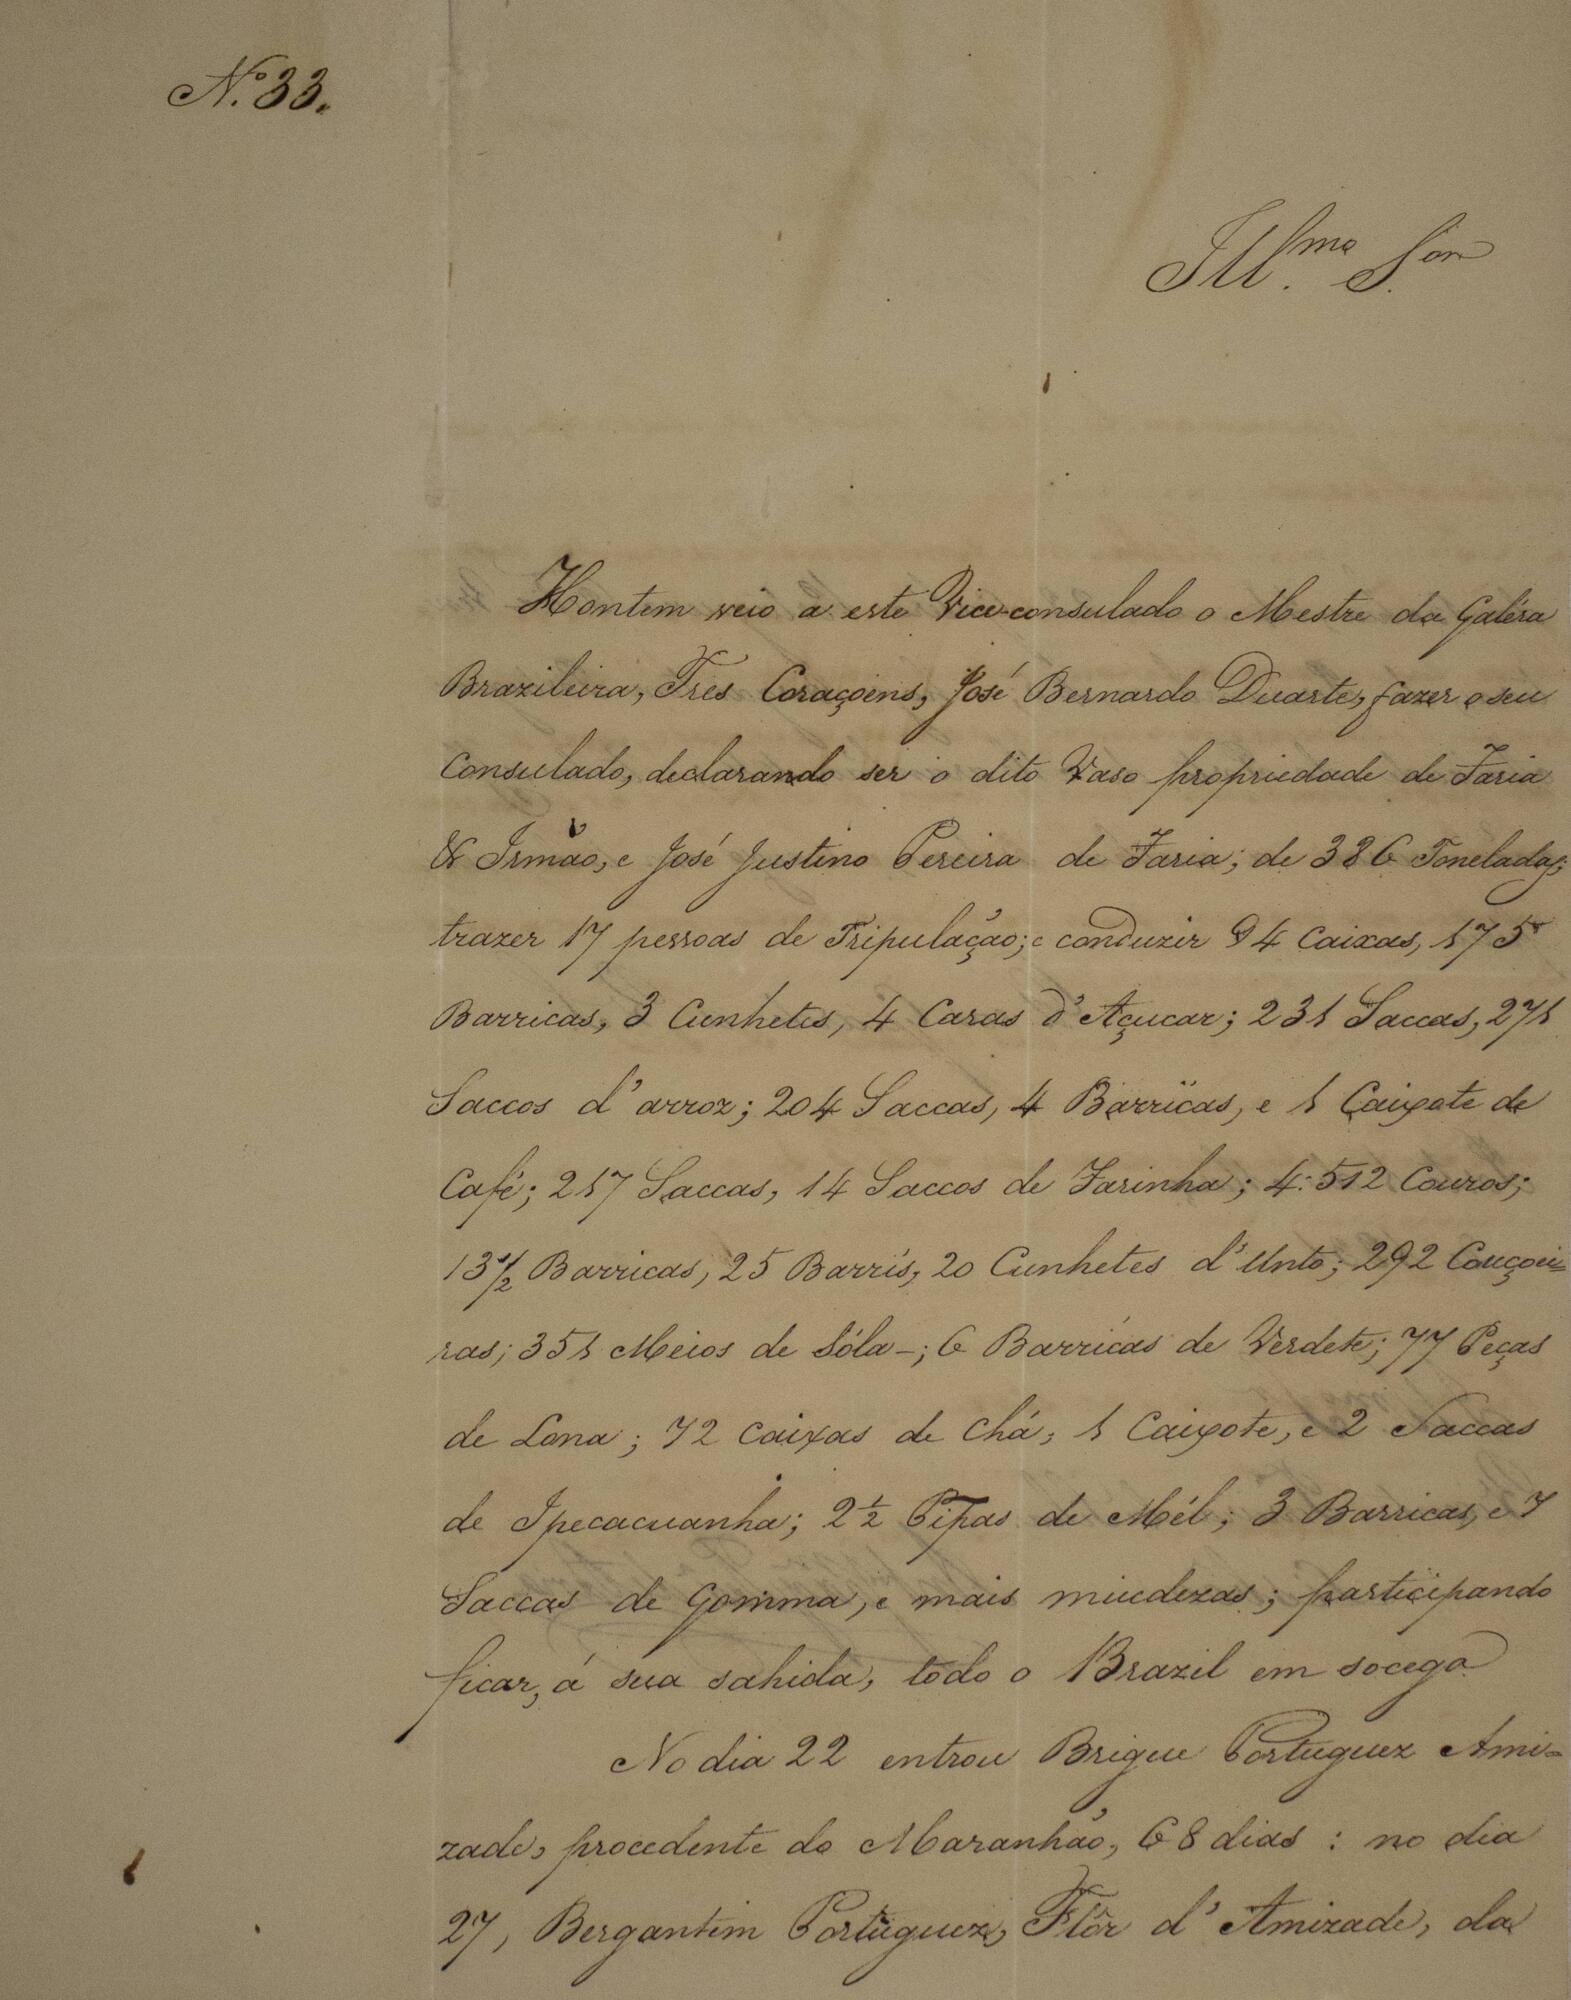 Nº 33.
Ill.mo S.or
Hontem veio a este Vice-consulado o Mestre da Galéra
Brazileira, Tres Coraçoens, José Bernardo Duarte, fazer o seu
Consulado, declarando ser o dito Vaso propriedade de Faria
& Irmão, e José Justino Pereira de Faria; de 386 Toneladas;
trazer 17 pessoas de Tripulação; e conduzir 94 Caixas, 175
Barricas, 3 Cunhetes, 4 Caras d'Açucar; 231 Saccas, 271
Saccos d'arroz; 204 Saccas, 4 Barricas, e 1 Caixote de
Café; 217 Saccas, 14 Saccos de Farinha; 4:512 Couros;
13 1/2 Barricas, 25 Barrís, 20 Cunhetes d'Unto; 292 Couçoei=
ras; 351 Meios de Sóla-; 6 Barricas de Verdete; 77 Peças
de Lona; 72 Caixas de Chá; 1 Caixote, e 2 Saccas
de Ipecacuanha; 2 1/2 Pipas de Mél; 3 Barricas, e 7
Saccas de Gomma, e mais miudezas; participando
ficar, á sua sahida, todo o Brazil em socego
No dia 22 entrou Brigue Portuguez Ami=
zade, procedente do Maranhão, 68 dias : no dia
27, Bergantim Portuguez, Flôr d'Amizade, da